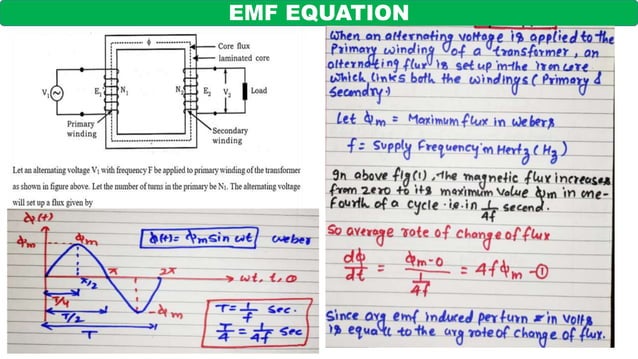 EMF EQUATION
Φ
Core flux
laminated core
V1
E1
N1
N2
E2
V2
Load
Primary
winding
Secondary
winding
Let an alternating voltage V1 with frequency F be applied to primary winding of the transformer
as shown in figure above. Let the number of turns in the primary be N1. The alternating voltage
will set up a flux given by
Φ(t)
Φm
Φm
Φ(t) = Φm sin wt weber
π/2
π
2π
wt, t, θ
T/4
T/2
T
-Φm
T = 1/f sec.
T/4 = 1/4f sec
When an alternating voltage is applied to the
Primary winding of a transformer, an
alternating flux is set up in the iron core
which links both the windings (Primary &
Secondry.)
Let Φm = Maximum flux in webers
f = Supply Frequency in Hertz (Hz)
In above fig(1), the magnetic flux increases
from zero to its maximum value Φm in one-
Fourth of a cycle i.e. in 1/4f second.
So average rate of change of flux
dΦ/dt = Φm-0 / 1/4f = 4fΦm -①
Since avg emf induced per turn in volts
is equall to the avg rate of change of flux.